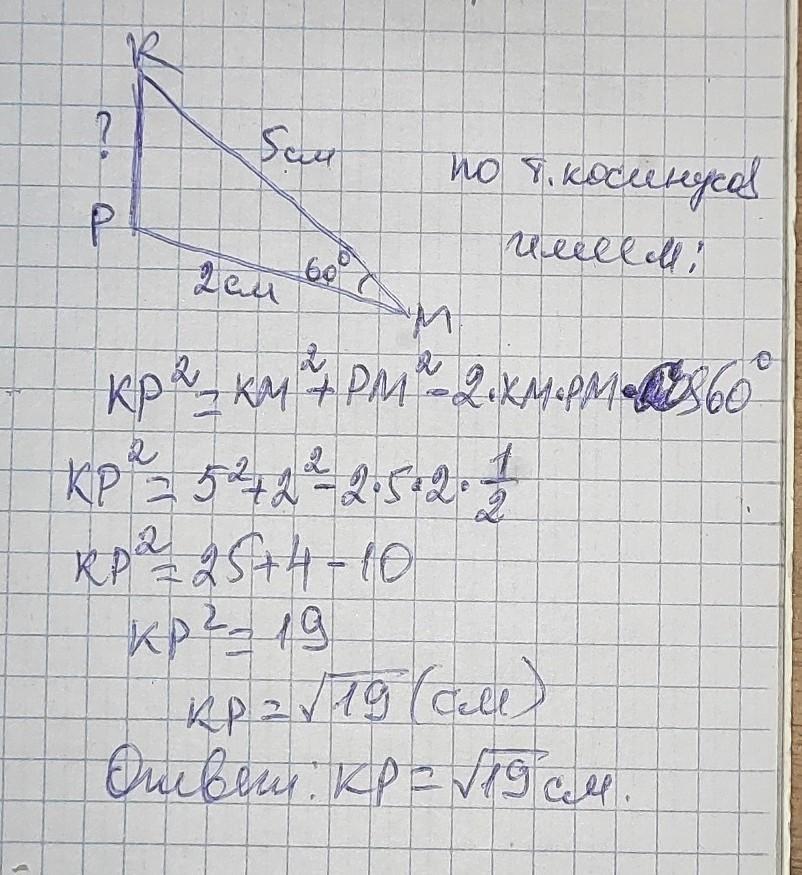 K
?
5см
по т. косинусов
имеем:
P
60°
2см
M
KP² = KM² + PM² - 2·KM·PM·cos60°
KP² = 5² + 2² - 2·5·2·1/2
KP² = 25 + 4 - 10
KP² = 19
KP = √19 (см)
Ответ: KP = √19 см.